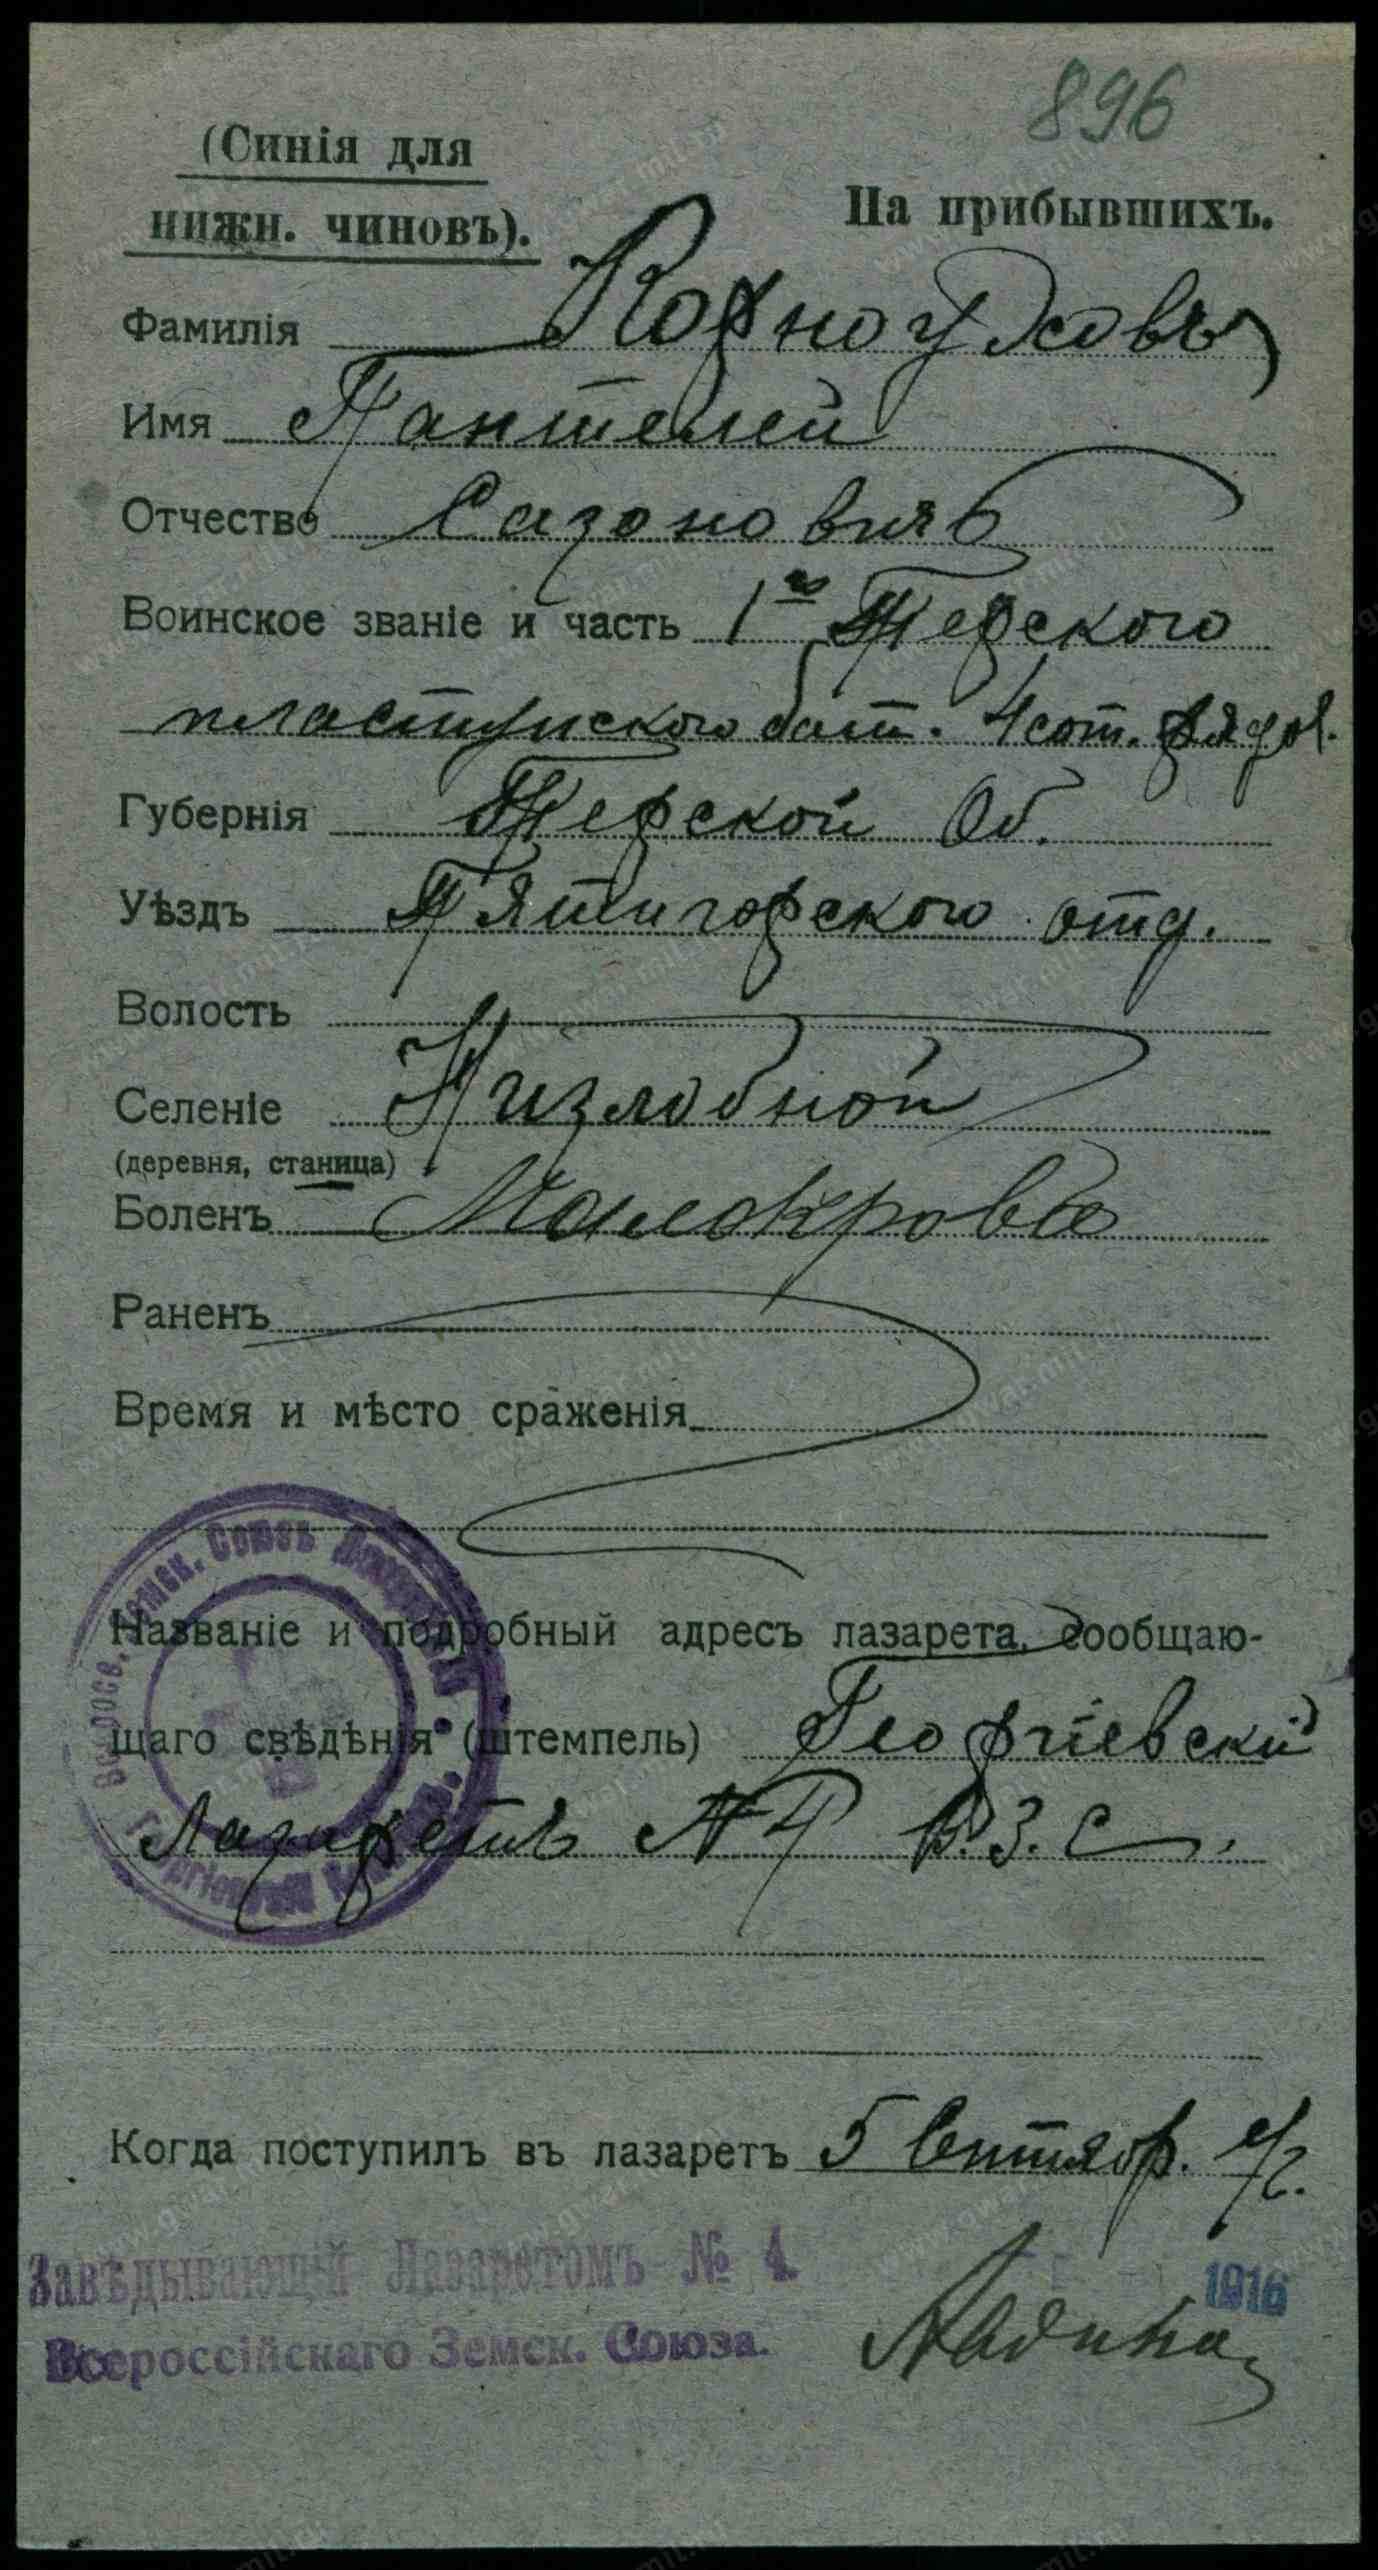 896
(Синія для
нижн. чиновъ).
На прибывшихъ.
Фамилія Корноуховъ
Имя Пантелей
Отчество Сазоновичъ
Воинское званіе и часть 1го Терского
пластунского бат. 4 сот. рядов.
Губернія Терской Об.
Уѣздъ Пятигорского отд.
Волость
Селеніе Незлобной
(деревня, станица)
Боленъ Малокровіе
Раненъ
Время и мѣсто сраженія
Названіе и подробный адресъ лазарета, сообщаю-
щаго свѣдѣнія (штемпель) Георгіевскій
Лазаретъ № 4 В. З. С.
Когда поступилъ въ лазаретъ 5 Сентябр. с/г.
Завѣдывающій Лазаретомъ № 4.
1916
Всероссійскаго Земск. Союза.